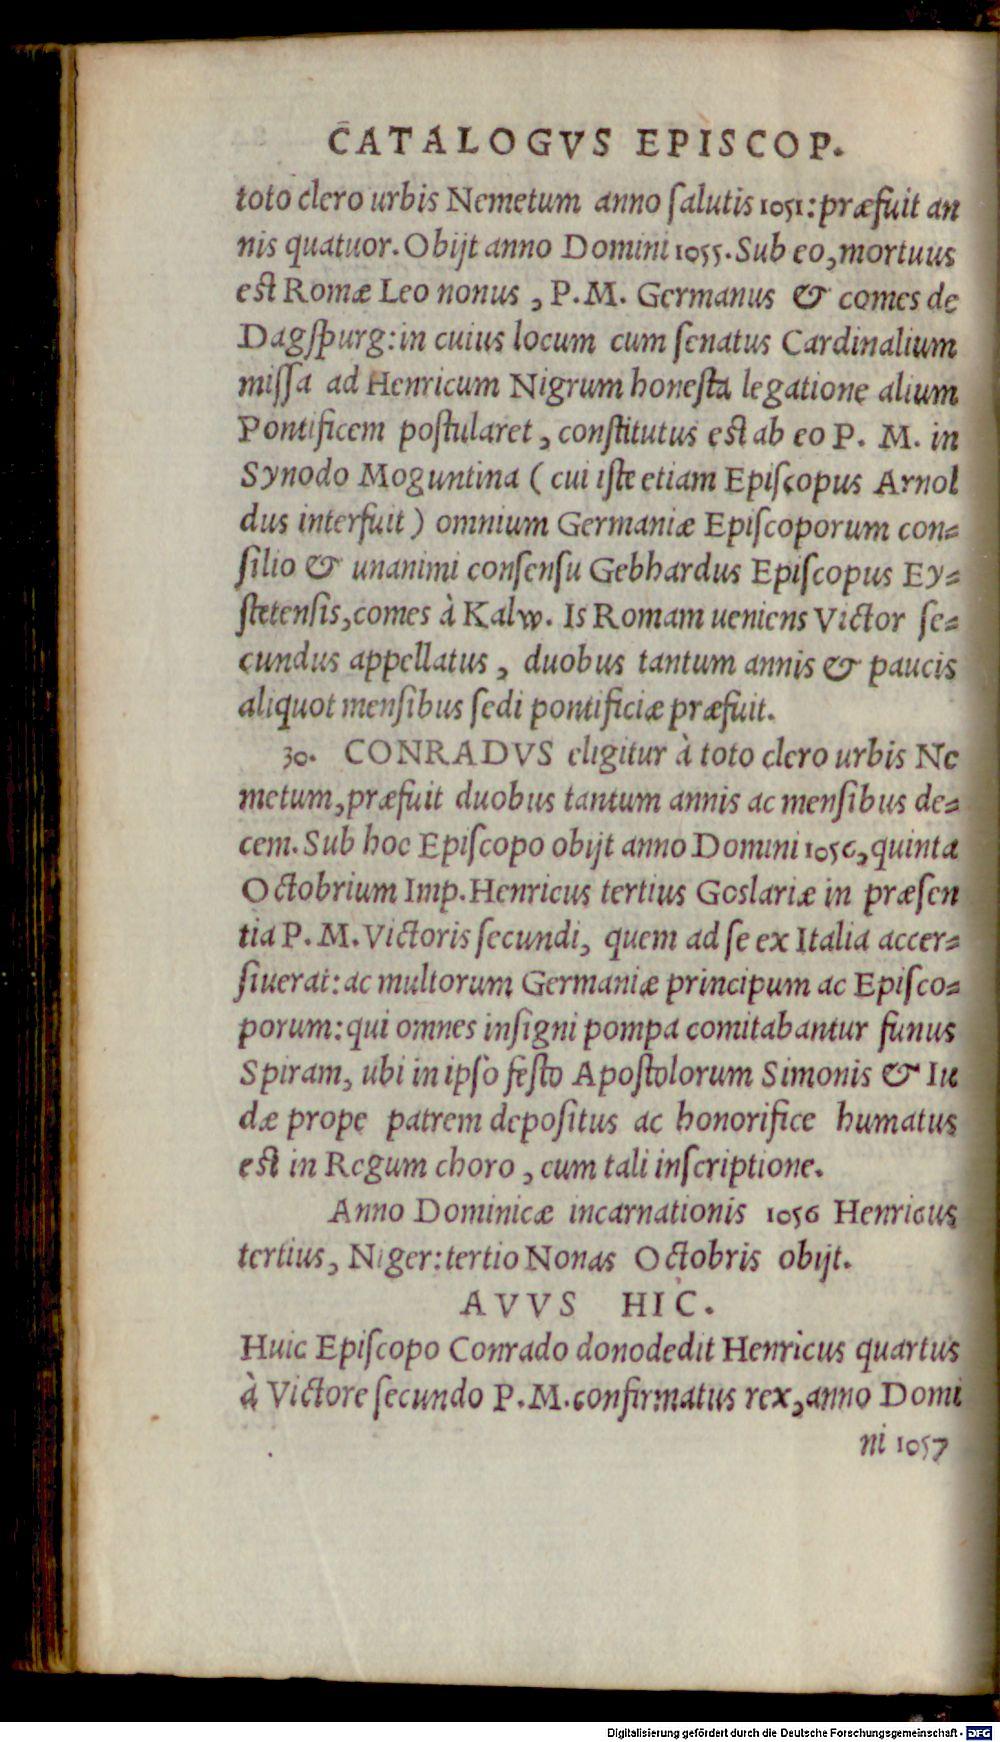 CATALOGVS EPISCOP.
toto clero urbis Nemetum anno ſalutis 1051: præfuit an
nis quatuor. Obijt anno Domini 1055. Sub eo, mortuus
est Romæ Leo nonus, P. M. Germanus & comes de
Dagſpurg: in cuius locum cum ſenatus Cardinalium
miſſa ad Henricum Nigrum honeſta legatione alium
Pontificem poſtularet, conſtitutus est ab eo P. M. in
Synodo Moguntina ( cui iſte etiam Epiſcopus Arnol
dus interfuit ) omnium Germaniæ Epiſcoporum con=
ſilio & unanimi conſenſu Gebhardus Epiſcopus Ey=
ſtetenſis, comes à Kalw. Is Romam ueniens Victor ſe=
cundus appellatus, duobus tantum annis & paucis
aliquot menſibus ſedi pontificiæ præfuit.
30. CONRADVS eligitur à toto clero urbis Ne
metum, præfuit duobus tantum annis ac menſibus de=
cem. Sub hoc Epiſcopo obijt anno Domini 1056, quinta
Octobrium Imp. Henricus tertius Goslariæ in præſen
tia P. M. Victoris ſecundi, quem ad ſe ex Italia accer=
ſiuerat: ac multorum Germaniæ principum ac Epiſco=
porum: qui omnes inſigni pompa comitabantur funus
Spiram, ubi in ipſo feſto Apoſtolorum Simonis & Iu
dæ prope patrem depoſitus ac honorifice humatus
est in Regum choro, cum tali inſcriptione.
Anno Dominicæ incarnationis 1056 Henricus
tertius, Niger: tertio Nonas Octobris obijt.
AVVS HIC.
Huic Epiſcopo Conrado dono dedit Henricus quartus
à Victore ſecundo P. M. confirmatus rex, anno Domi
ni 1057
Digitalisierung gefördert durch die Deutsche Forschungsgemeinschaft - DFG